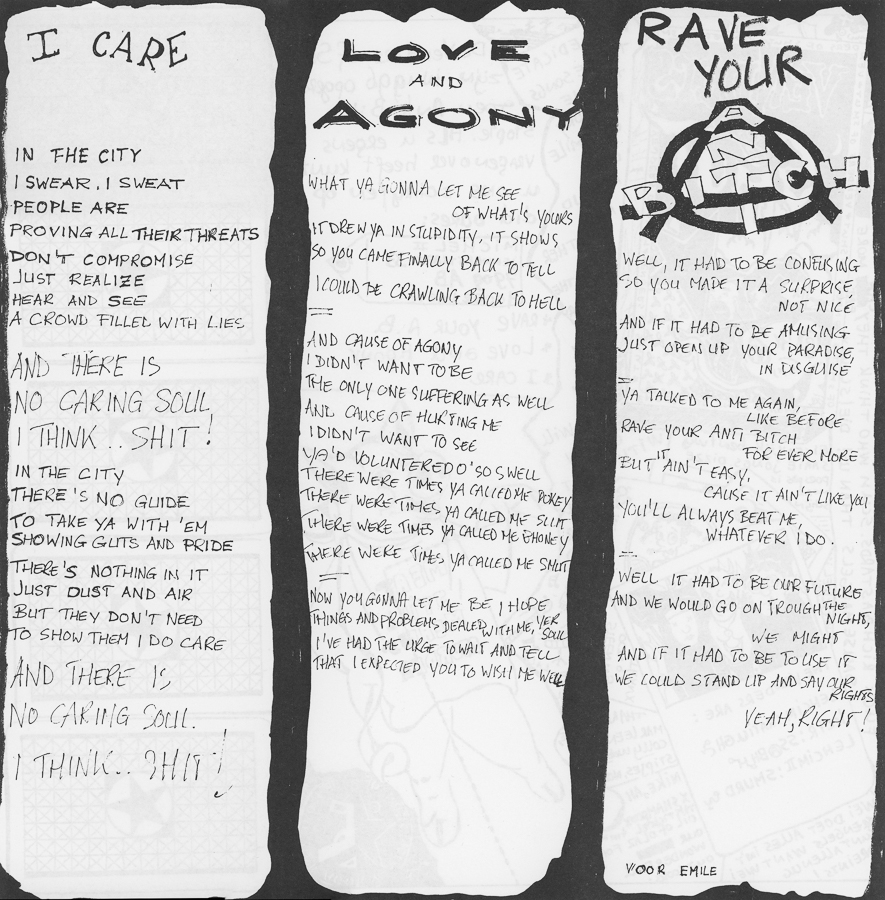 I CARE
IN THE CITY
I SWEAR. I SWEAT
PEOPLE ARE
PROVING ALL THEIR THREATS
DON'T COMPROMISE
JUST REALIZE
HEAR AND SEE
A CROWD FILLED WITH LIES
AND THERE IS
NO CARING SOUL
I THINK .. SHIT!
IN THE CITY
THERE'S NO GUIDE
TO TAKE YA WITH 'EM
SHOWING GUTS AND PRIDE
THERE'S NOTHING IN IT
JUST DUST AND AIR
BUT THEY DON'T NEED
TO SHOW THEM I DO CARE
AND THERE IS
NO CARING SOUL.
I THINK.. SHIT!
LOVE
AND
AGONY
WHAT YA GONNA LET ME SEE
OF WHAT'S YOURS
IT DREW YA IN STUPIDITY, IT SHOWS
SO YOU CAME FINALLY BACK TO TELL
I COULD BE CRAWLING BACK TO HELL
AND CAUSE OF AGONY
I DIDN'T WANT TO BE
THE ONLY ONE SUFFERING AS WELL
AND CAUSE OF HURTING ME
I DIDN'T WANT TO SEE
YA'D VOLUNTERED O' SO SWELL
THERE WERE TIMES YA CALLED ME POKEY
THERE WERE TIMES YA CALLED ME SLUT
THERE WERE TIMES YA CALLED ME PHONEY
THERE WERE TIMES YA CALLED ME SMUT
NOW YOU GONNA LET ME BE, I HOPE
THINGS AND PROBLEMS DEALED WITH ME, YER SOUL
I'VE HAD THE URGE TO WAIT AND TELL
THAT I EXPECTED YOU TO WISH ME WELL
RAVE
YOUR
ANTI
BITCH
WELL, IT HAD TO BE CONFUSING
SO YOU MADE IT A SURPRISE,
NOT NICE
AND IF IT HAD TO BE AMUSING
JUST OPEN UP YOUR PARADISE,
IN DISGUISE
YA TALKED TO ME AGAIN,
LIKE BEFORE
RAVE YOUR ANTI BITCH
FOR EVER MORE
BUT IT AIN'T EASY,
CAUSE IT AIN'T LIKE YOU
YOU'LL ALWAYS BEAT ME,
WHATEVER I DO.
WELL IT HAD TO BE OUR FUTURE
AND WE WOULD GO ON TROUGH THE NIGHT,
WE MIGHT
AND IF IT HAD TO BE TO USE IT
WE COULD STAND UP AND SAY OUR RIGHTS
YEAH, RIGHT!
VOOR EMILE